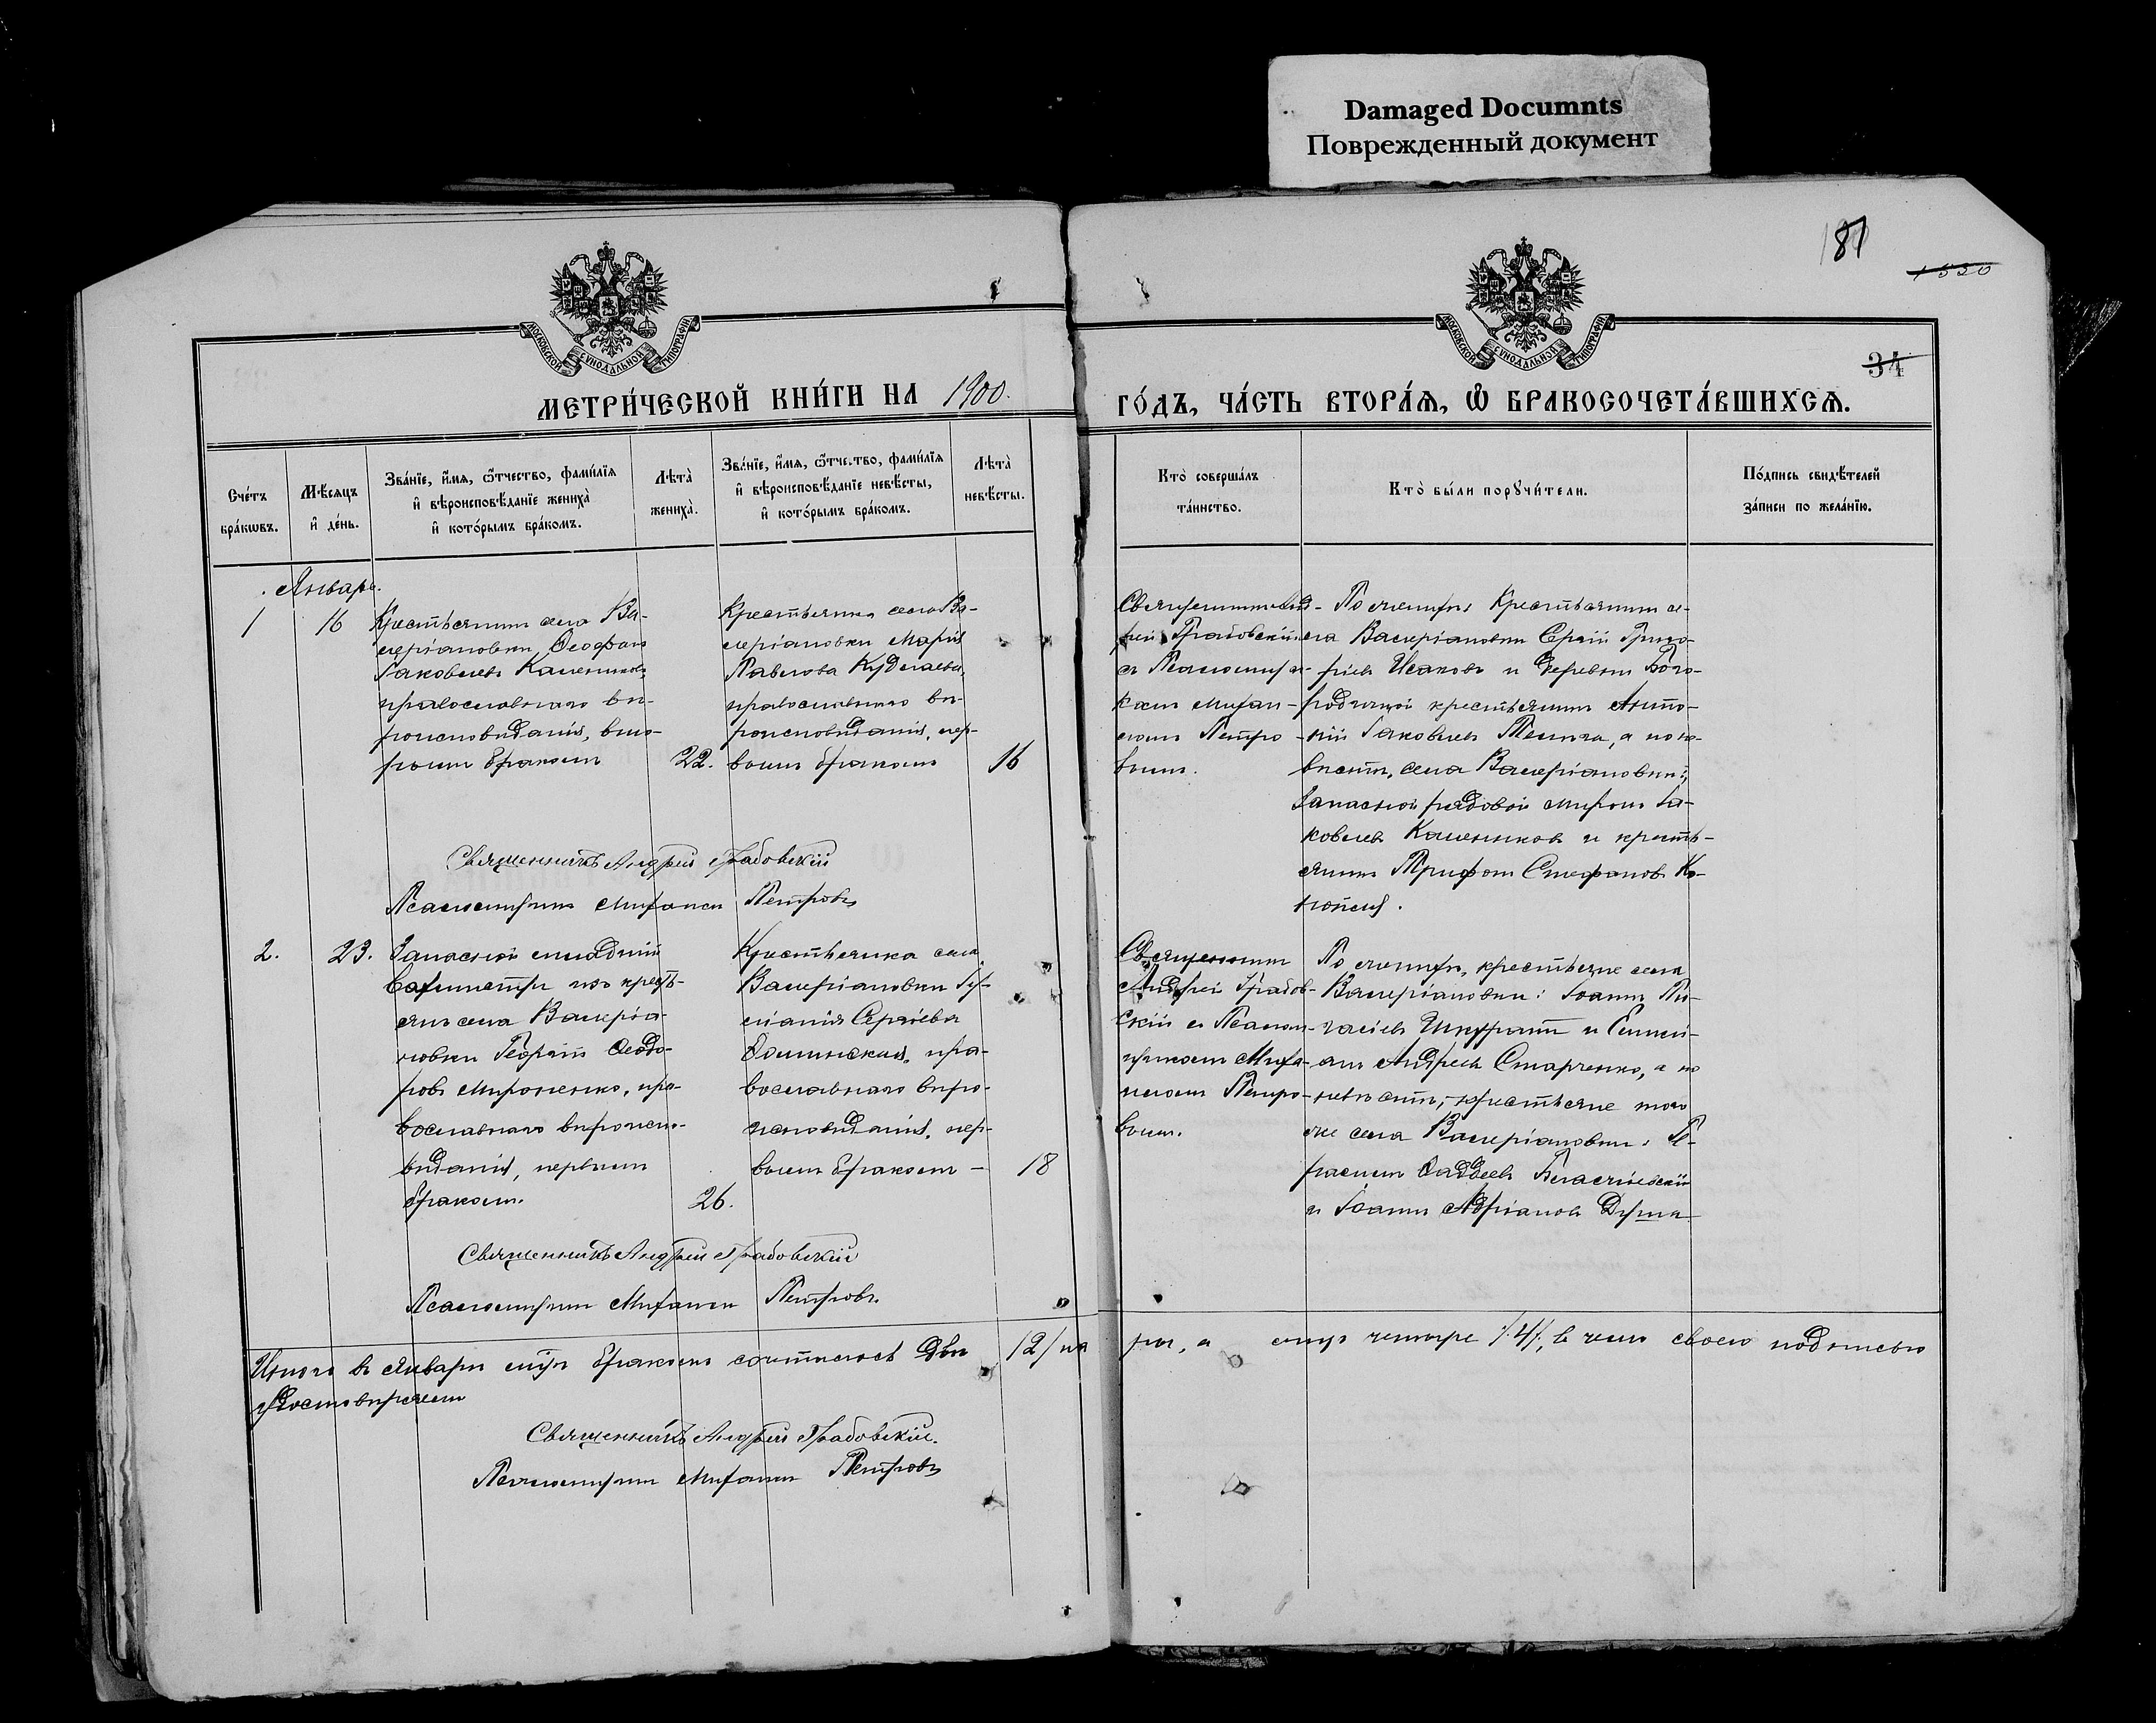 Damaged Documnts
Поврежденный документ
181
1520
34
МОСКОВСКОЙ СѴНОДАЛЬНОЙ ТИПОГРАФІИ
МОСКОВСКОЙ СѴНОДАЛЬНОЙ ТИПОГРАФІИ
МЕТРИ́ЧЕСКОЙ КНИ́ГИ НА 1900.
ГО́ДЪ, ЧА́СТЬ ВТОРА́Я, Ѡ БРАКОСОЧЕТА́ВШИХСѦ.
Сче́тъ
бра́кѡвъ.
Мѣ́сяцъ
и҆ де́нь.
Зва́нїе, и҆́мѧ, ѻ҆́тчество, фами́лїѧ
и҆ вѣроисповѣ́данїе жениха̀
и҆ кото́рымъ бра́комъ.
Лѣта̀
жениха̀.
Зва́нїе, и҆́мѧ, ѻ҆́тчество, фами́лїѧ
и҆ вѣроисповѣ́данїе невѣ́сты,
и҆ кото́рымъ бра́комъ.
Лѣта̀
невѣ́сты.
Кто̀ соверша́лъ
та́инство.
Кто̀ бы́ли порꙋчи́тели.
По́дпись свидѣ́телей
за́писи по жела́нїю.
Январь.
1
16
Крестьянинъ села Ва-
леріановки Ѳеофанъ
Іаковлевъ Калениковъ,
православнаго вѣ-
роисповѣданія, вто-
рымъ бракомъ
22.
Крестьянка села Ва-
леріановки Марія
Павлова
православнаго вѣ-
роисповѣданія, пер-
вымъ бракомъ
16
Священникъ Анд-
рей Грабовскій
съ Псаломщи-
комъ Митро-
Петро-
вымъ.
По женихѣ: Крестьянинъ се-
ла Валеріановки Сергій Григо-
рьевъ Исаковъ и деревни Бого-
родицкой крестьянинъ Анто-
ній Іаковлевъ а по не-
вѣстѣ, села Валеріановки:
Запасной рядовой Миронъ Іа-
ковлевъ Калениковъ и кресть-
янинъ Трифонъ Стефановъ
Священникъ Андрей Грабовскій
Псаломщикъ Петровъ
2.
23.
Запасной младшій
вахмистръ изъ кресть-
янъ села Валеріа-
новки Георгій Ѳеодо-
ровъ Мироненко, пра-
вославнаго вѣроиспо-
вѣданія, первымъ
бракомъ.
26.
Крестьянка села
Валеріановки Іу-
ліанія Сергіева
пра-
вославнаго вѣро-
исповѣданія, пер-
вымъ бракомъ –
18
Священникъ
Андрей Грабов-
скій съ Псалом-
щикомъ
Петро-
вымъ.
По женихѣ, крестьяне села
Валеріановки: Іоаннъ
Шкуратъ и
Андреевъ Старченко, а по
невѣстѣ, крестьяне того
же села Валеріановки: Ге-
расимъ Ѳаддеевъ
и Іоаннъ Адріановъ
Священникъ Андрей Грабовскій
Псаломщикъ Петровъ.
Итого въ Январѣ мѣсяцѣ бракомъ сочеталось двѣ /2/ па
ры, а лицъ четыре /4/, въ чемъ своею подписью
удостовѣряемъ
Священникъ Андрей Грабовскій.
Псаломщикъ Петровъ